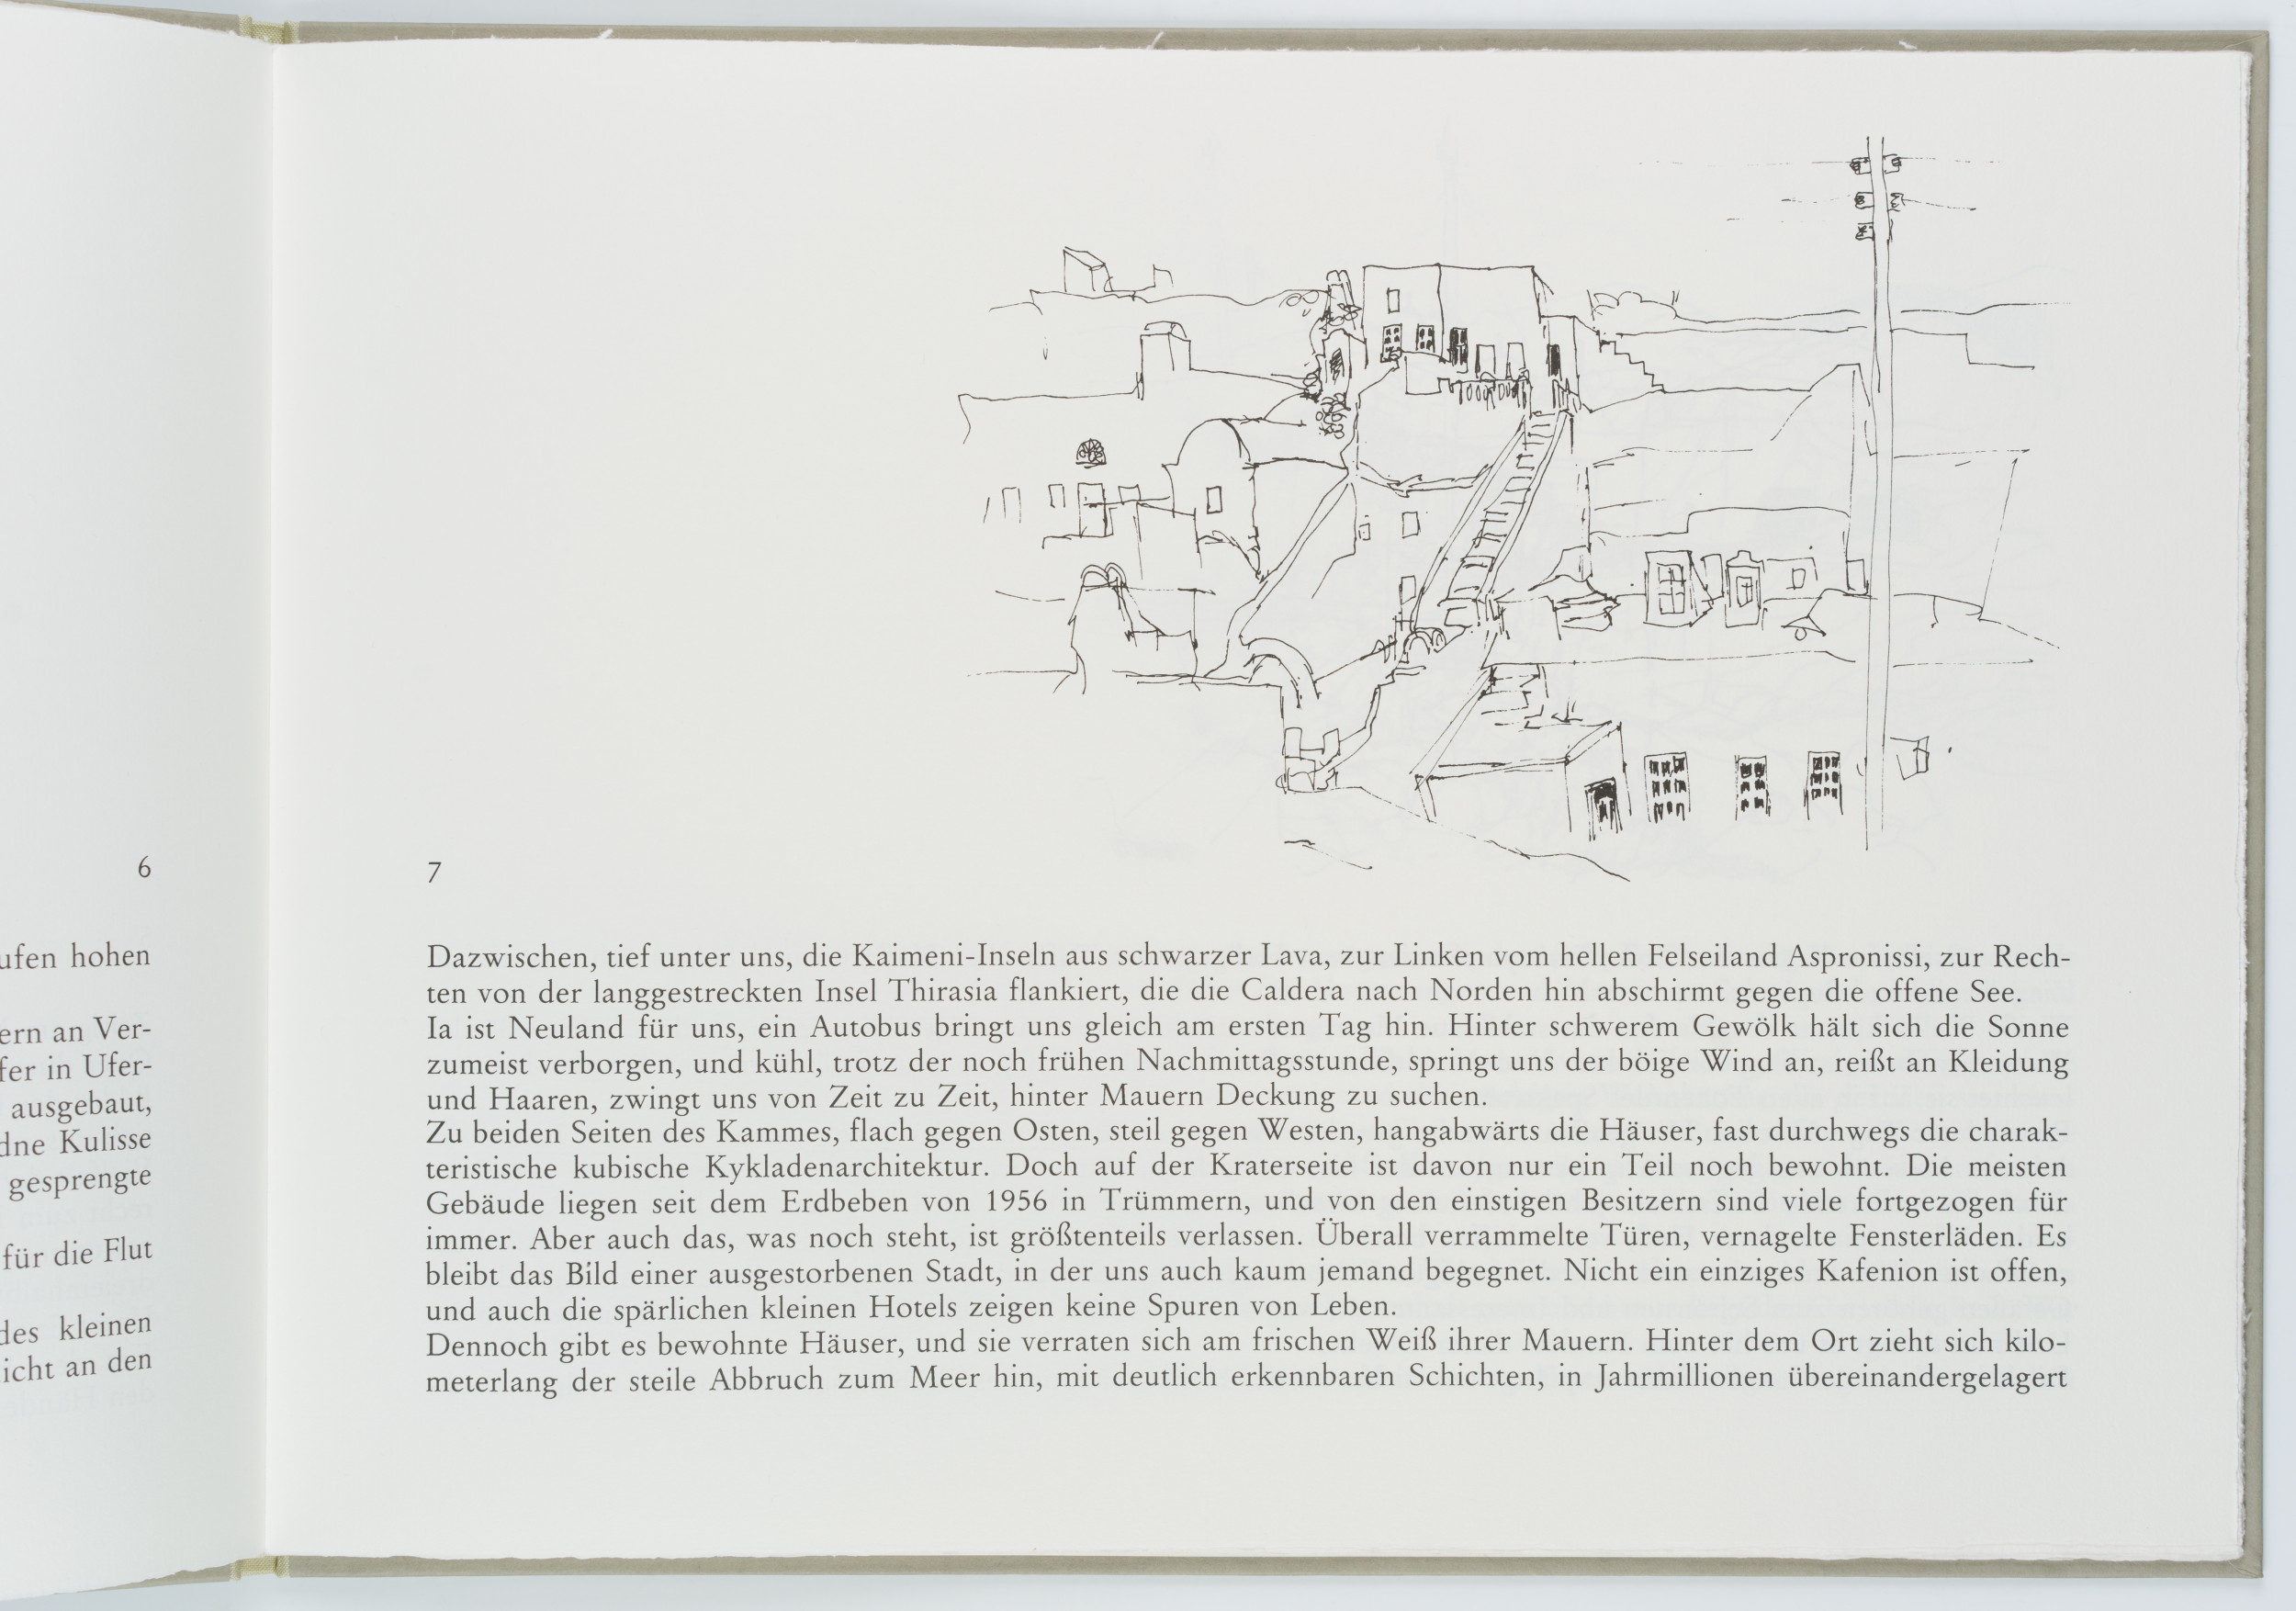 6
hohen
an Ver-
in Ufer-
ausgebaut,
Kulisse
gesprengte
für die Flut
des kleinen
an den
7
Dazwischen, tief unter uns, die Kaimeni-Inseln aus schwarzer Lava, zur Linken vom hellen Felseiland Aspronissi, zur Rech-
ten von der langgestreckten Insel Thirasia flankiert, die die Caldera nach Norden hin abschirmt gegen die offene See.
Ia ist Neuland für uns, ein Autobus bringt uns gleich am ersten Tag hin. Hinter schwerem Gewölk hält sich die Sonne
zumeist verborgen, und kühl, trotz der noch frühen Nachmittagsstunde, springt uns der böige Wind an, reißt an Kleidung
und Haaren, zwingt uns von Zeit zu Zeit, hinter Mauern Deckung zu suchen.
Zu beiden Seiten des Kammes, flach gegen Osten, steil gegen Westen, hangabwärts die Häuser, fast durchwegs die charak-
teristische kubische Kykladenarchitektur. Doch auf der Kraterseite ist davon nur ein Teil noch bewohnt. Die meisten
Gebäude liegen seit dem Erdbeben von 1956 in Trümmern, und von den einstigen Besitzern sind viele fortgezogen für
immer. Aber auch das, was noch steht, ist größtenteils verlassen. Überall verrammelte Türen, vernagelte Fensterläden. Es
bleibt das Bild einer ausgestorbenen Stadt, in der uns auch kaum jemand begegnet. Nicht ein einziges Kafenion ist offen,
und auch die spärlichen kleinen Hotels zeigen keine Spuren von Leben.
Dennoch gibt es bewohnte Häuser, und sie verraten sich am frischen Weiß ihrer Mauern. Hinter dem Ort zieht sich kilo-
meterlang der steile Abbruch zum Meer hin, mit deutlich erkennbaren Schichten, in Jahrmillionen übereinandergelagert